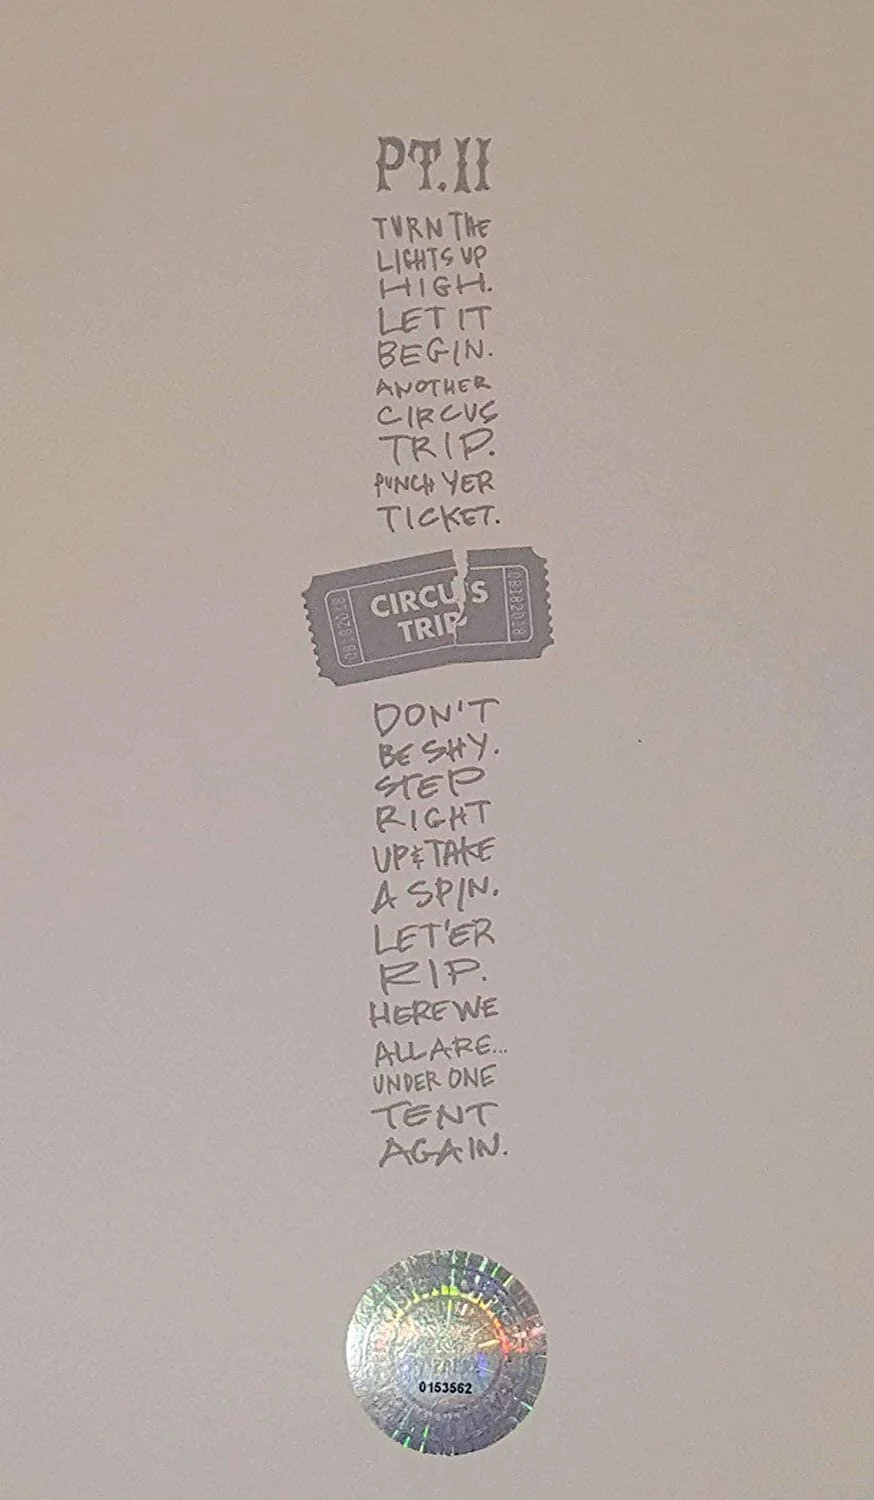 PT.II
TURN THE
LIGHTS UP
HIGH.
LET IT
BEGIN.
ANOTHER
CIRCUS
TRIP.
PUNCH YER
TICKET.
CIRCUS
TRIP
DON'T
BE SHY.
STEP
RIGHT
UP & TAKE
A SPIN.
LET'ER
RIP.
HERE WE
ALL ARE...
UNDER ONE
TENT
AGAIN.
0153562